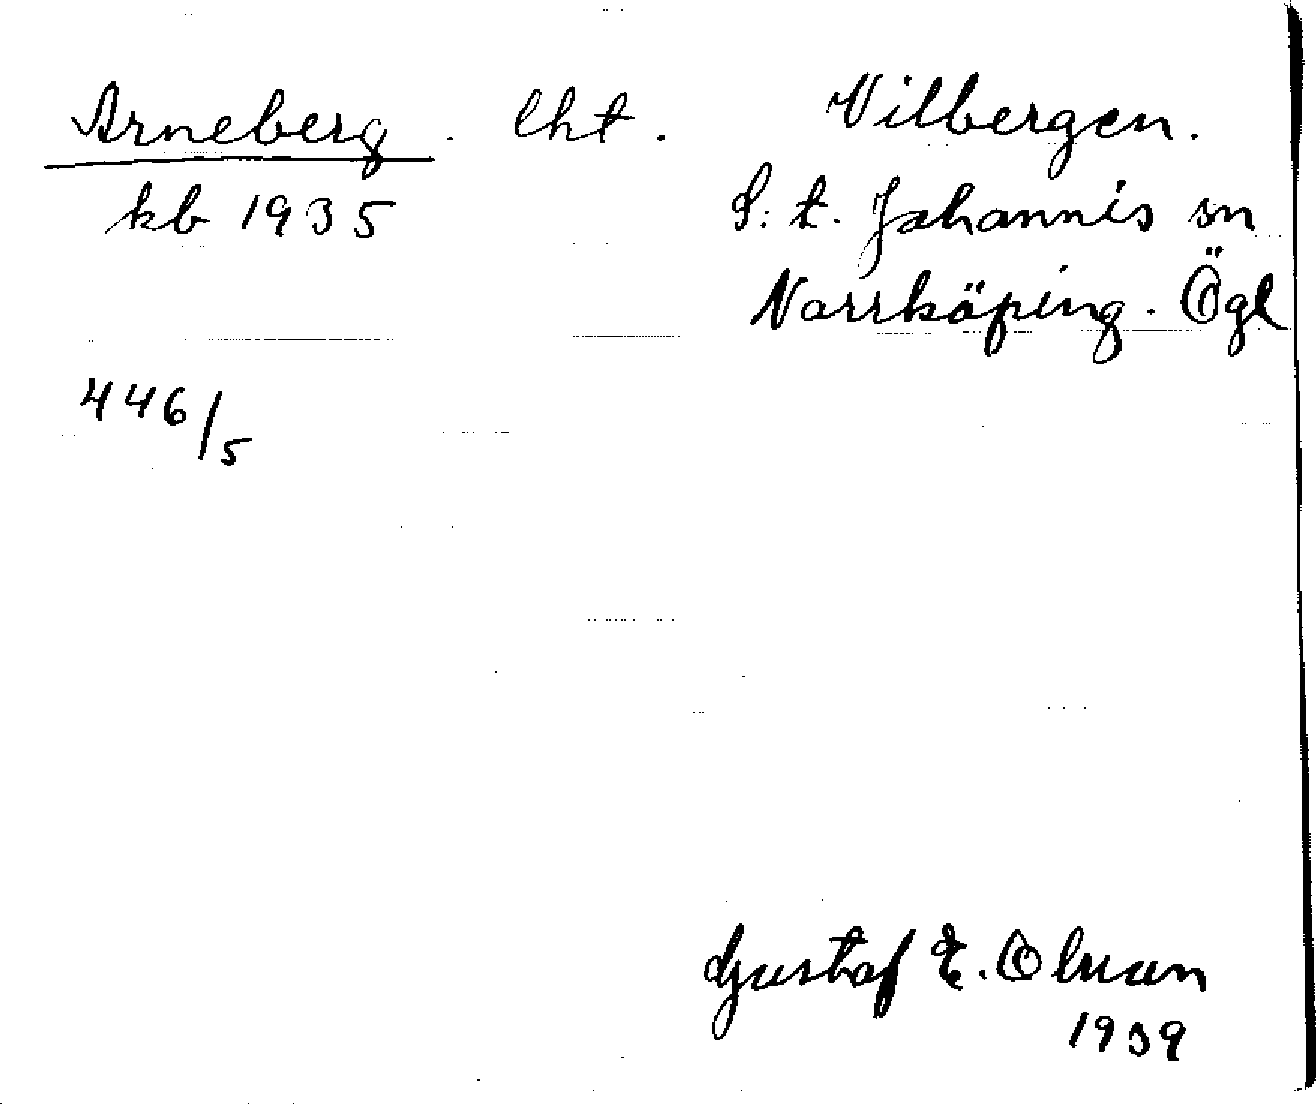 Arneberg. lht. Vilbergen.
kb 1935 S:t. Johannis sn
Norrköping. Ögl
446/5
Gustaf E.
1939